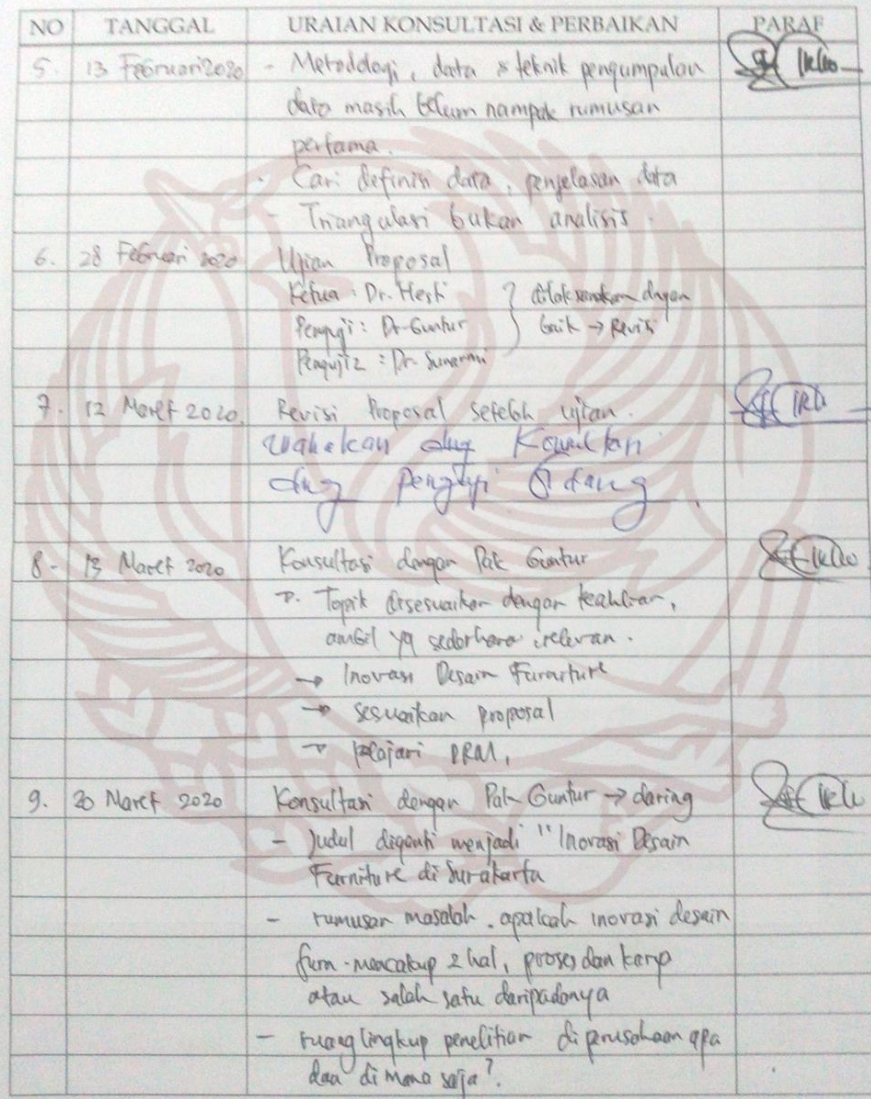 NO TANGGAL URAIAN KONSULTASI & PERBAIKAN PARAF
5. 13 Februari 2020 - Metodologi, data & teknik pengumpulan
data masih belum nampak rumusan
pertama.
- Cari definisi data, penjelasan data
- Triangulasi bukan analisis.
6. 28 Februari 2020 Ujian Proposal
Ketua : Dr. Hesti } dilaksanakan dengan
Penguji : Dr. Guntur baik → Revisi
Penguji 2 : Dr. Sunarmi
7. 12 Maret 2020. Revisi Proposal setelah ujian.
dng
dng Penguji Sidang
8. 13 Maret 2020 Konsultasi dengan Pak Guntur
→ Topik disesuaikan dengan keahlian,
ambil yg sederhana, relevan.
→ Inovasi Desain Furniture
→ sesuaikan proposal
→ pelajari
9. 20 Maret 2020 Konsultasi dengan Pak Guntur → daring
- Judul diganti menjadi "Inovasi Desain
Furniture di Surakarta
- rumusan masalah. apakah inovasi desain
furn. mencakup 2 hal, proses dan karya
atau salah satu daripadanya
- ruang lingkup penelitian di perusahaan apa
dan di mana saja?.